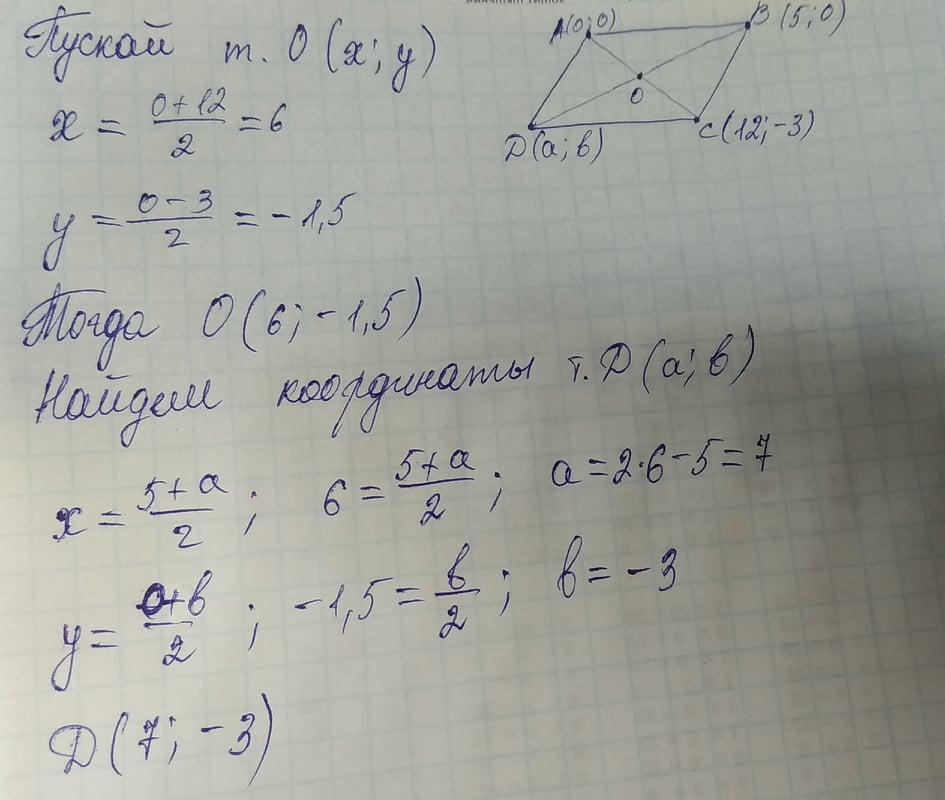 Пускай т. О (x; y)
A(0;0)
B (5;0)
O
D(a; b)
C(12;-3)
x = (0+12)/2 = 6
y = (0-3)/2 = -1,5
Тогда О (6; -1,5)
Найдем координаты т. D (a; b)
x = (5+a)/2 ; 6 = (5+a)/2 ; a = 2·6-5 = 7
y = (0+b)/2 ; -1,5 = b/2 ; b = -3
D (7; -3)